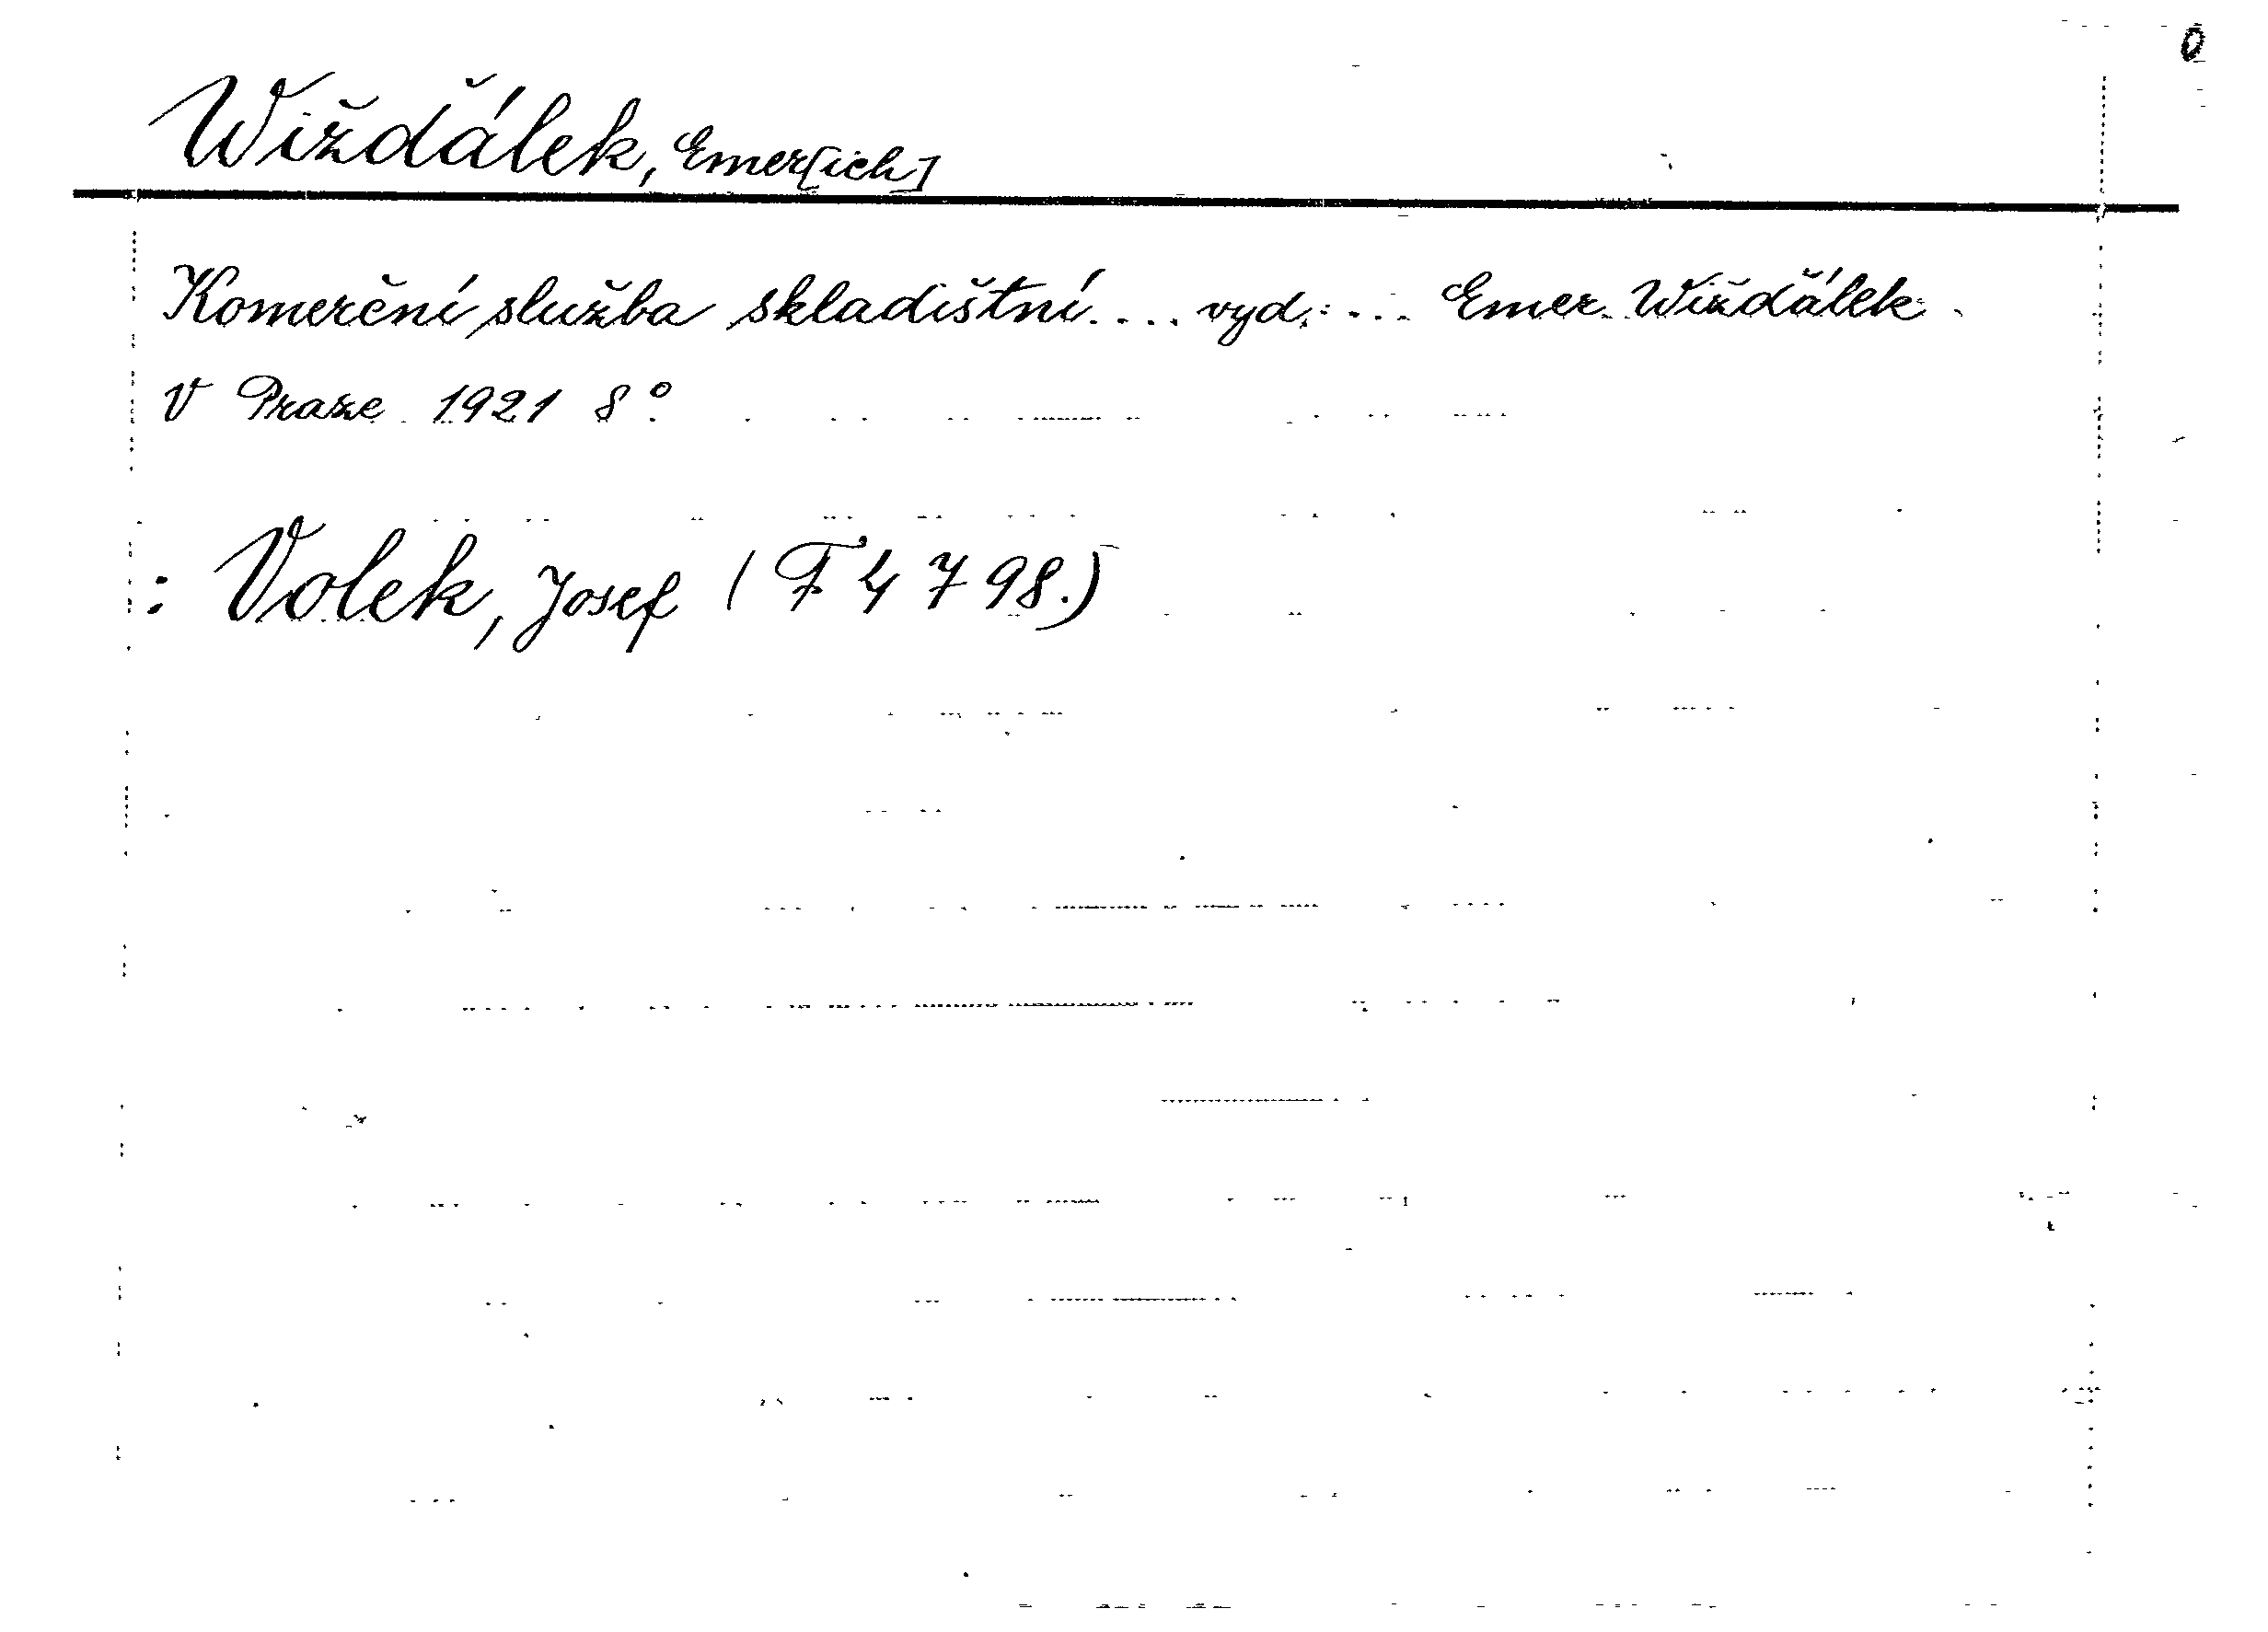 0
Wiždálek, Emer[ich]
Komerční služba skladištní.... vyd.:... Emer. Wiždálek.
V Praze 1921 8°.
: Volek, Josef (F 4798.)